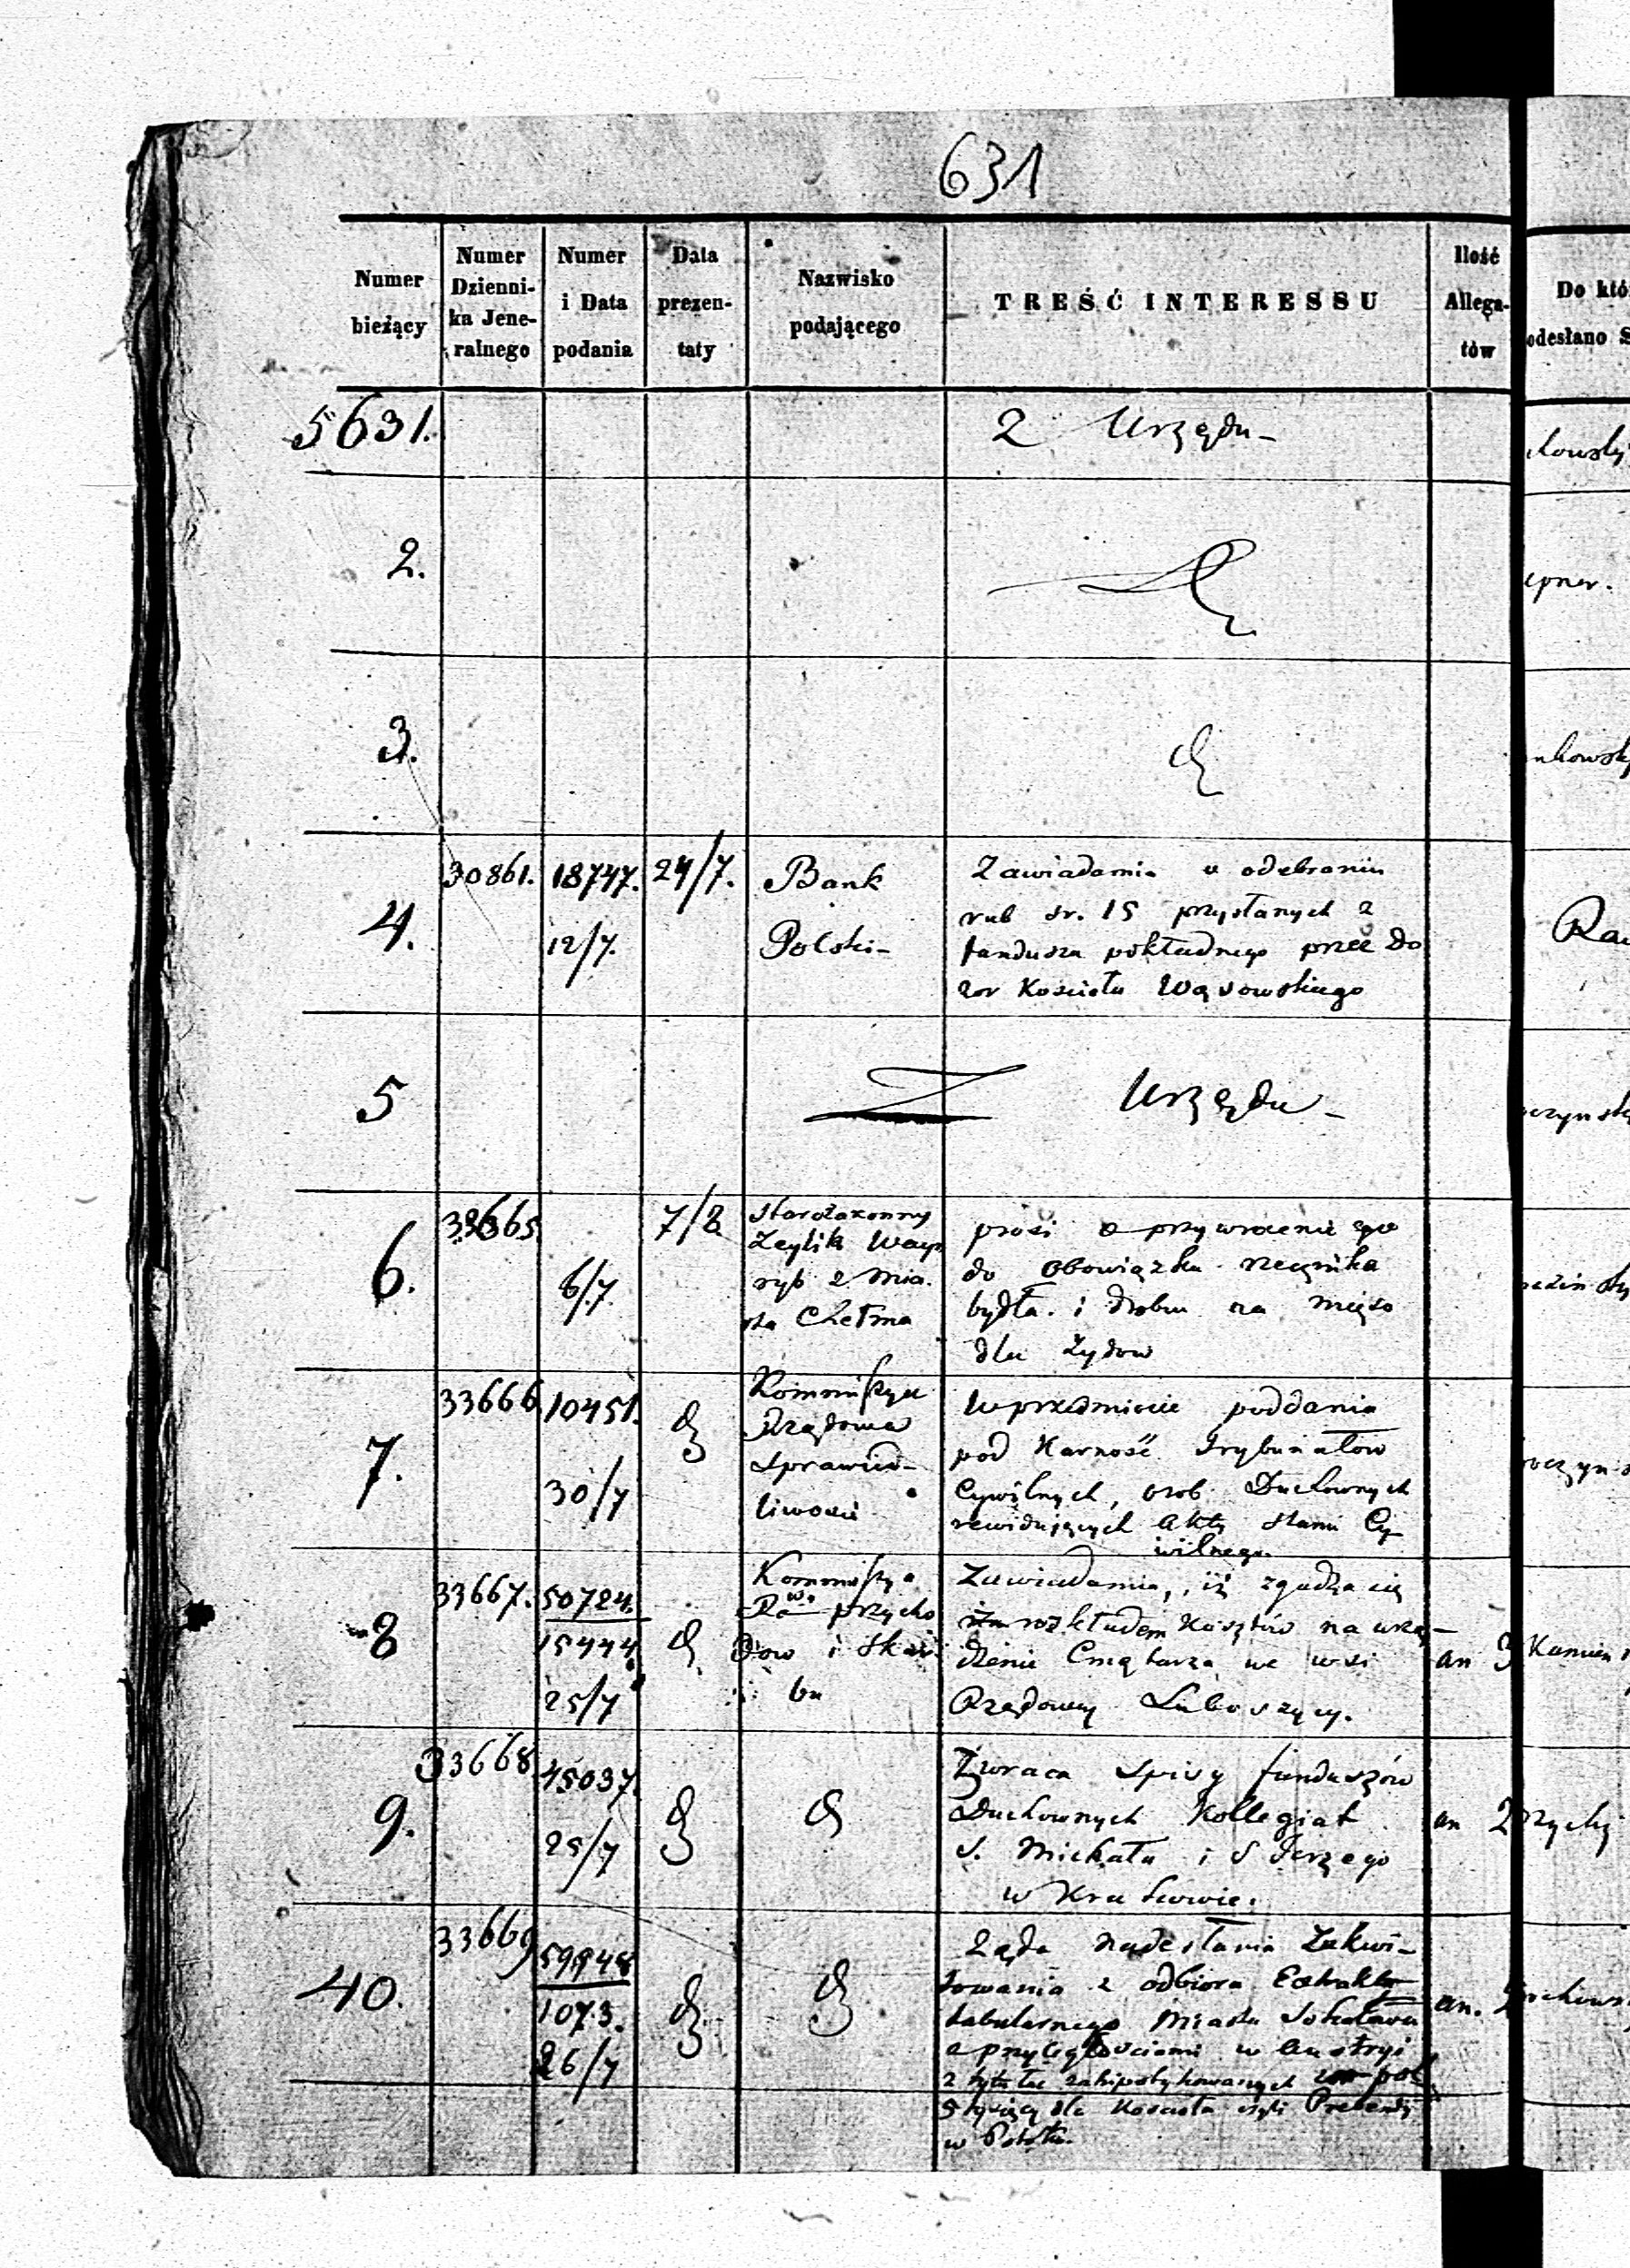 631
Numer
bieżący
Numer
Dzienni-
ka Jene-
ralnego
Numer
i Data
podania
Data
prezen-
taty
Nazwisko
podającego
TREŚĆ INTERESSU
Ilość
Allega-
tów
Do któ
odesłano S
5631.
Z Urzędu-
2.
3.
4.
30861.
18747.
12/7.
24/7.
Bank
Polski-
Zawiadamia o odebraniu
rub sr. 15 przysłanych z
fundusza pokładnego przez Do
zor Kościoła Wąsowskiego
5
Z Urzędu-
6.
6/7.
7/8
Starozakonny
Zeylik
z Mia.
sta Chełma
prosi o przywrócenie go
do obowiązku rzeźnika
bydła. i drobiu na mięso
dla Żydow
7.
33666
10451.
30/7
Kommissya
Rządowa
Sprawied-
liwości
W przedmiocie poddania
pod Karność Trybunałow
Cywilnych, osob Duchownych
rewidujących Akta Stanu Cy-
wilnego.
8
33667.
50724.
15444
25/7
Kommissya
Rwa przycho
dow i Skar
bu
Zawiadamia, iż zgadza się
rozkładem Kosztów na urzą-
dzenie Cmętarza we wsi
Rządowey Luboszycy.
an 3
9.
33668
45037.
25/7
Zwraca Spisy funduszów
Duchownych Kollegiat
S. Michała i S Jerzego
w Krakowie.
an 2
40.
33669
59948
1073.
26/7
Żąda nadesłania Zakwi-
towania z odbioru Extraktu
tabularnego Miasta Sokołowa
z przyległościami w Austryi
z tytułu zahipotykowanych
5 tysięcy dla Kościoła czyli Prebendy
w
an.